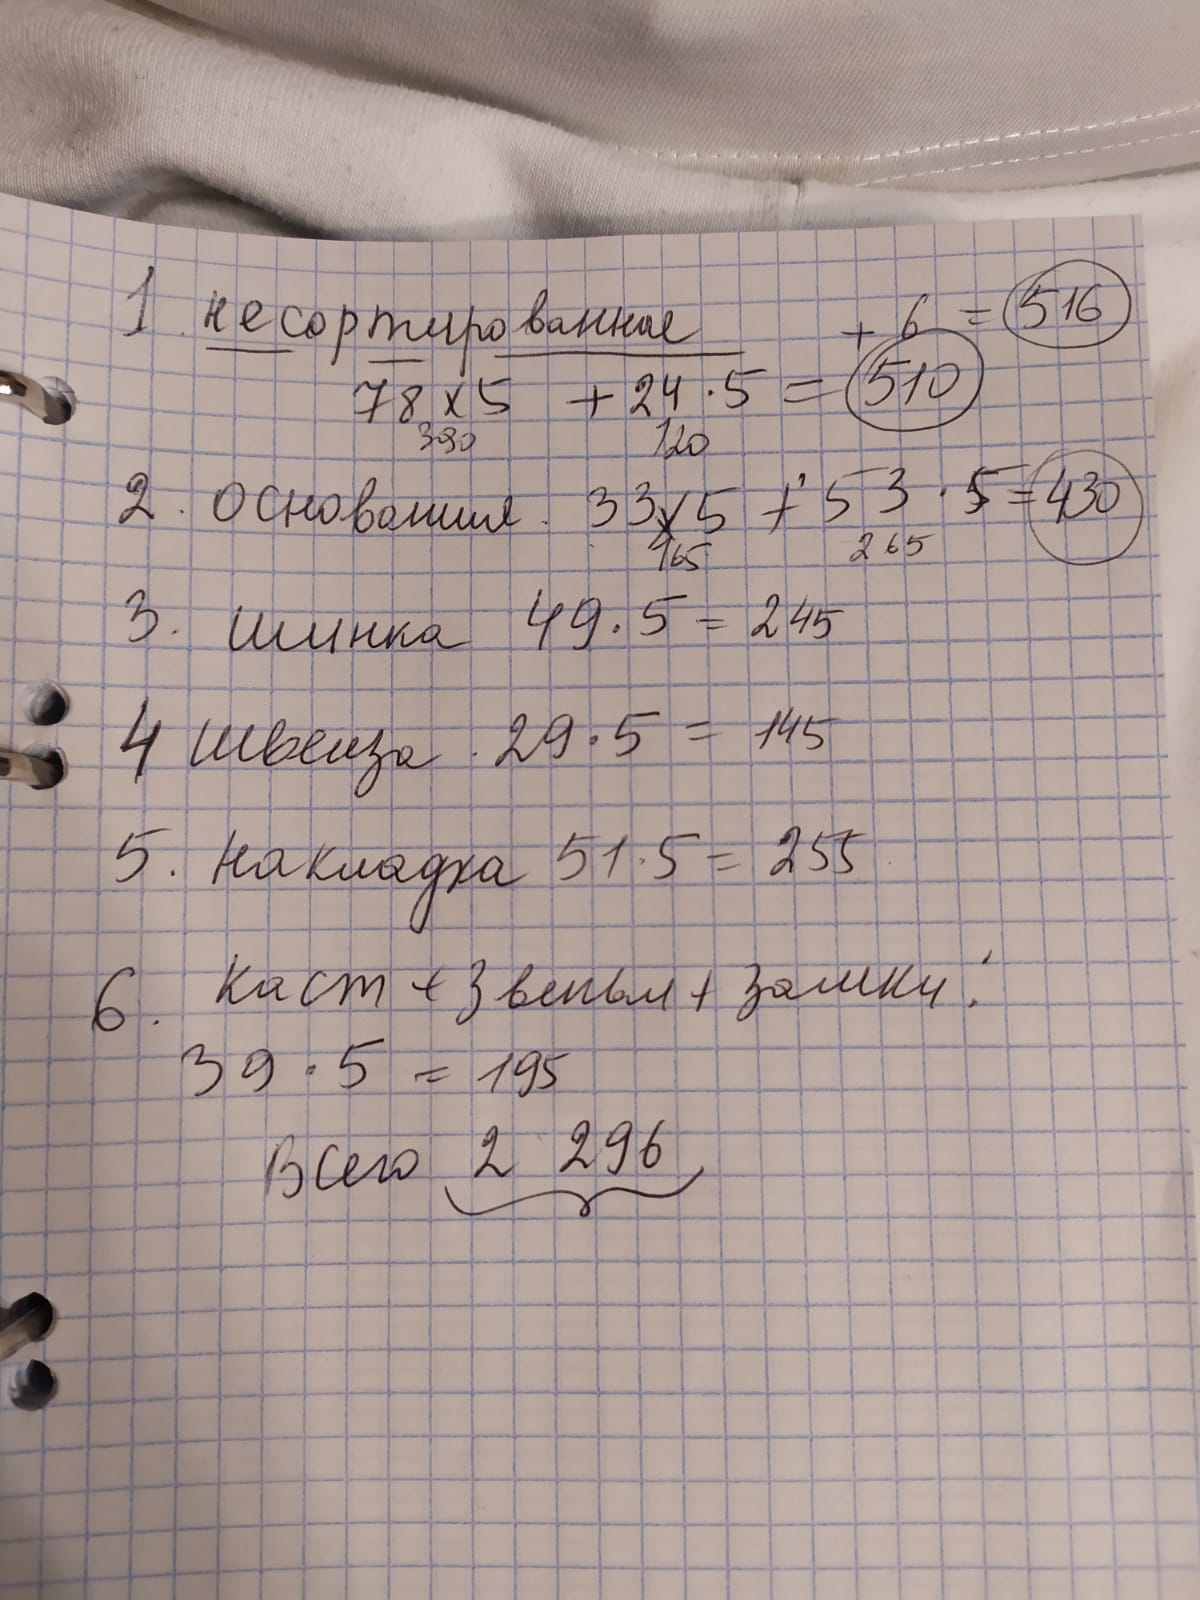 1. несортированные + 6 = 516
78 x 5 + 24 · 5 = 510
390 120
2. Основания. 33 x 5 + 53 · 5 = 430
165 265
3. шинка 49 · 5 = 245
4 швенза. 29 · 5 = 145
5. Накладка 51 · 5 = 255
6. Каст + Звенья + замки:
39 · 5 = 195
Всего 2 296